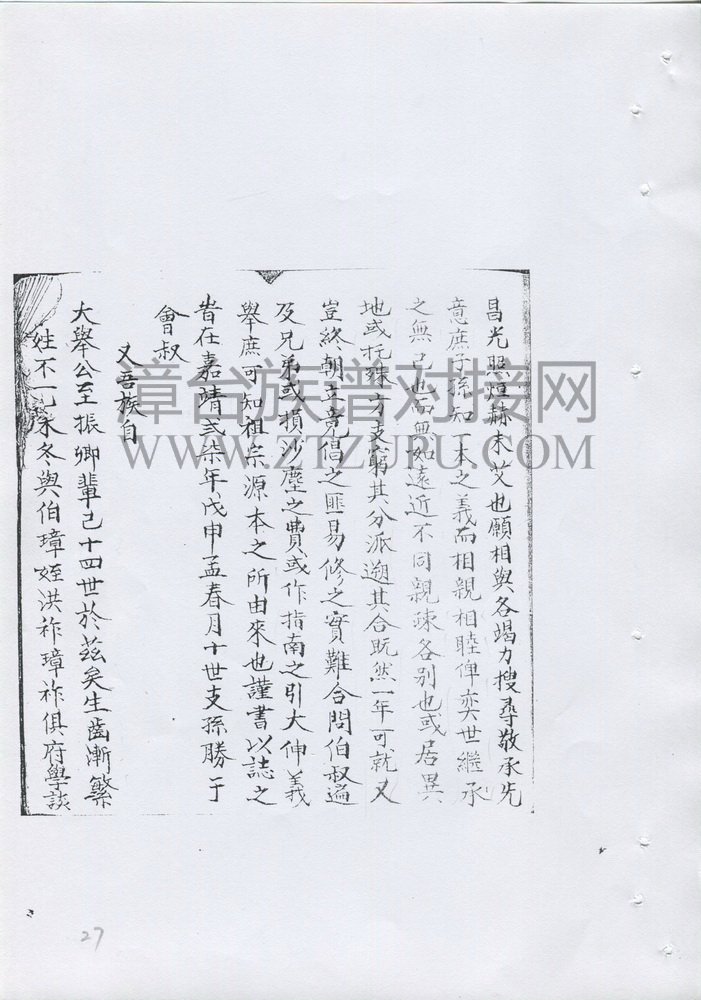 昌光照烜赫未艾也願相與各竭力搜尋敬承先
意庶子孫知一本之義而相親相睦俾奕世繼承
之無已也而無如遠近不同親疎各別也或居異
地或托殊方支窮其分派遡其合既然一年可就又
豈終朝立竟倡之匪易修之實難合問伯叔遍
及兄弟或損沙塵之費或作指南之引大伸義
舉庶可知祖宗源本之所由來也謹書以誌之
旹在嘉靖弍柒年戊申孟春月十世支孫勝于
會叔
又吾族自
大舉公至振卿輩已十四世於茲矣生齒漸繁
姓不一 冬與伯璋姪洪祚璋祚俱府學談
漳台族谱对接网
WWW.ZTZUPU.COM
27